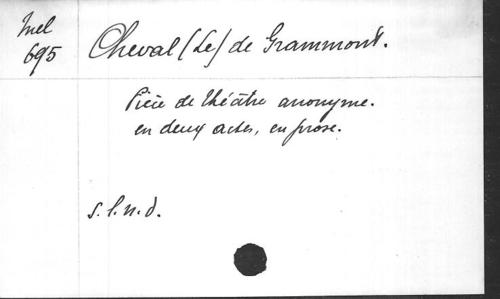 Mel
695
Cheval (Le) de Grammont.
Pièce de théâtre anonyme.
en deux actes, en prose.
s. l. n. d.